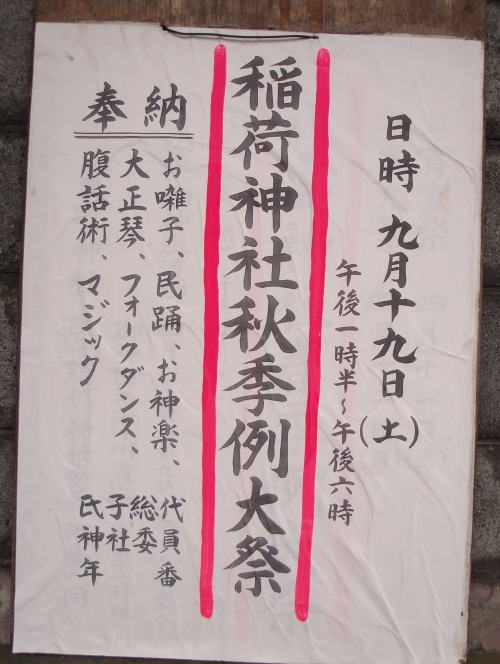 日時 九月十九日(土)
午後一時半~午後六時
稲荷神社秋季例大祭
奉納
お囃子、民踊、お神楽、
大正琴、フォークダンス、
腹話術、マジック
代員番
総委
子社
氏神年